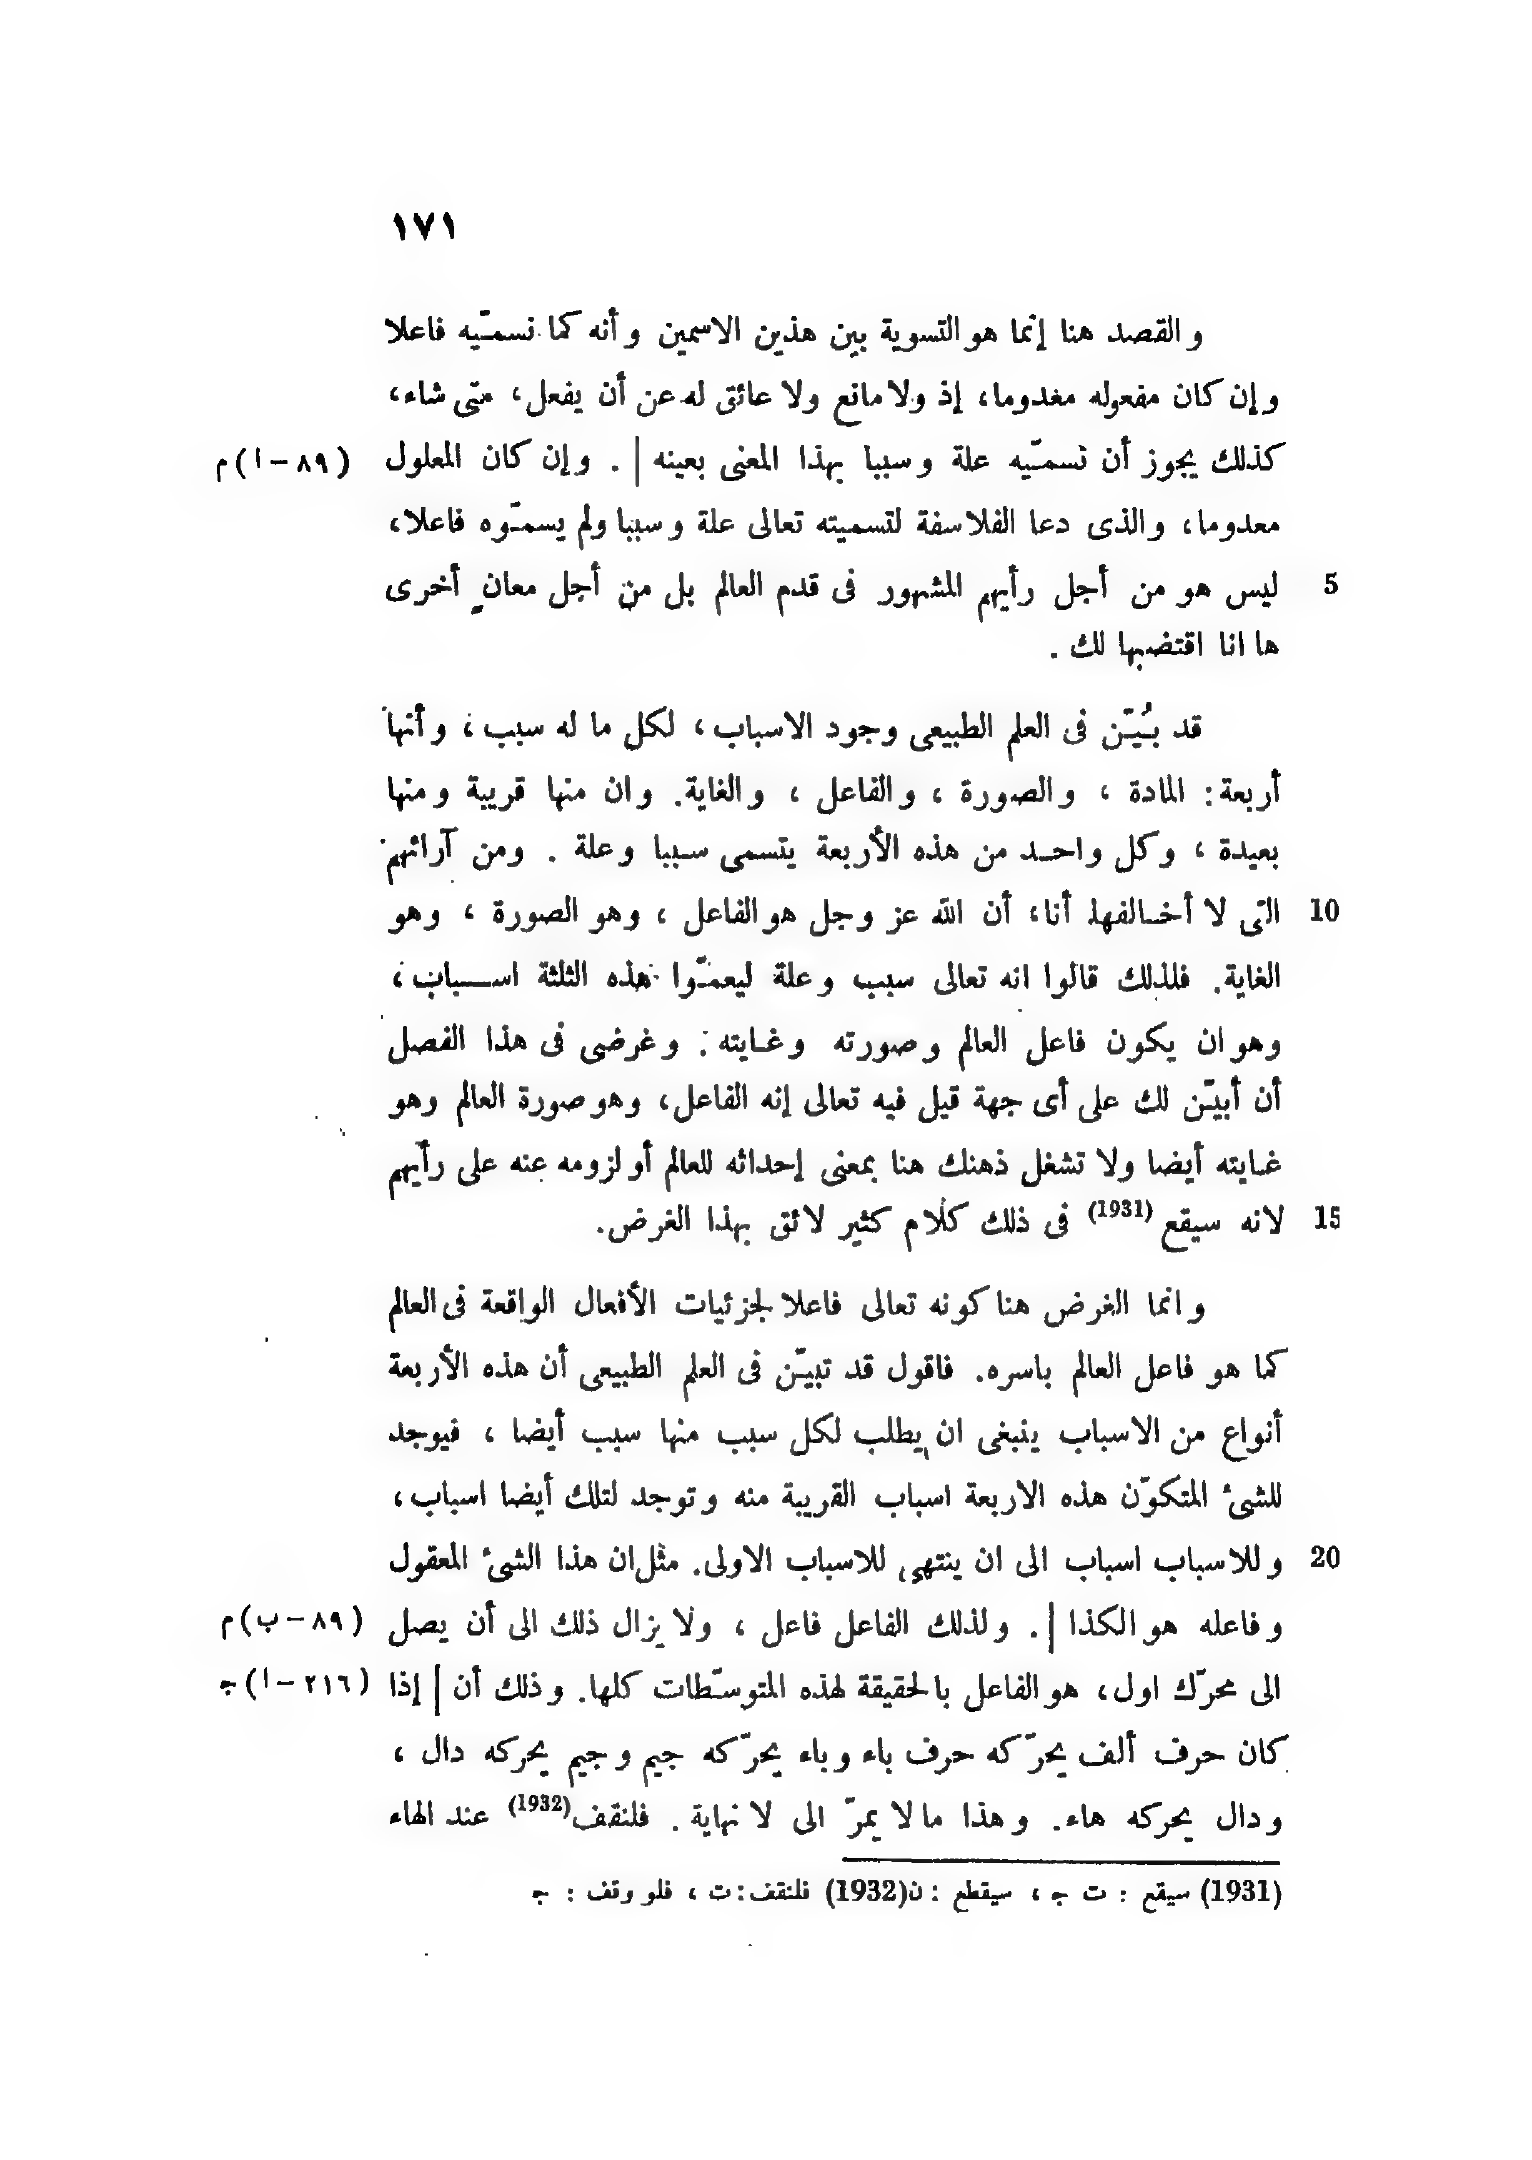 ١٧١
والقصد هنا إنما هو التسوية بين هذين الاسمين وأنه كما نسمّيه فاعلا
وإن كان مفعوله معدوما، إذ ولا مانع ولا عائق له عن أن يفعل، متى شاء،
كذلك يجوز أن نسمّيه علة وسببا بهذا المعنى بعينه | . وإن كان المعلول (٨٩-ا)م
معدوما، والذى دعا الفلاسفة لتسميته تعالى علة وسببا ولم يسمّوه فاعلا،
5 ليس هو من أجل رأيهم المشهور فى قدم العالم بل من أجل معانٍ أخرى
ها انا اقتضبها لك .
قد بُيّن فى العلم الطبيعى وجود الاسباب، لكل ما له سبب، وأنها
أربعة: المادة ، والصورة ، والفاعل ، والغاية. وان منها قريبة ومنها
بعيدة ، وكل واحد من هذه الأربعة يتسمى سببا وعلة . ومن آرائهم
10 التى لا أخالفها أنا، أن الله عز وجل هو الفاعل ، وهو الصورة ، وهو
الغاية. فلذلك قالوا انه تعالى سبب وعلة ليعمّوا هذه الثلثة اسباب،
وهو ان يكون فاعل العالم وصورته وغايته. وغرضى فى هذا الفصل
أن أبيّن لك على أى جهة قيل فيه تعالى إنه الفاعل، وهو صورة العالم وهو
غايته أيضا ولا تشغل ذهنك هنا بمعنى إحداثه للعالم أو لزومه عنه على رأيهم
15 لانه سيقع (1931) فى ذلك كلام كثير لائق بهذا الغرض.
وانما الغرض هنا كونه تعالى فاعلا لجزئيات الأفعال الواقعة فى العالم
كما هو فاعل العالم باسره. فاقول قد تبيّن فى العلم الطبيعى أن هذه الأربعة
أنواع من الاسباب ينبغى ان يطلب لكل سبب منها سبب أيضا ، فيوجد
للشىء المتكوّن هذه الاربعة اسباب القريبة منه وتوجد لتلك أيضا اسباب،
20 وللاسباب اسباب الى ان ينتهى للاسباب الاولى. مثل ان هذا الشىء المعقول
وفاعله هو الكذا |. ولذلك الفاعل فاعل ، ولا يزال ذلك الى أن يصل (٨٩-ب)م
الى محرّك اول، هو الفاعل بالحقيقة لهذه المتوسّطات كلها. وذلك أن | إذا (٢١٦-ا)ج
كان حرف ألف يحرّكه حرف باء وباء يحرّكه جيم وجيم يحركه دال ،
ودال يحركه هاء. وهذا ما لا يمرّ الى لا نهاية . فلنقف(1932) عند الهاء
(1931) سيقع : ت ج ، سيقطع : ن(1932) فلنقف:ت ، فلو وقف : ج